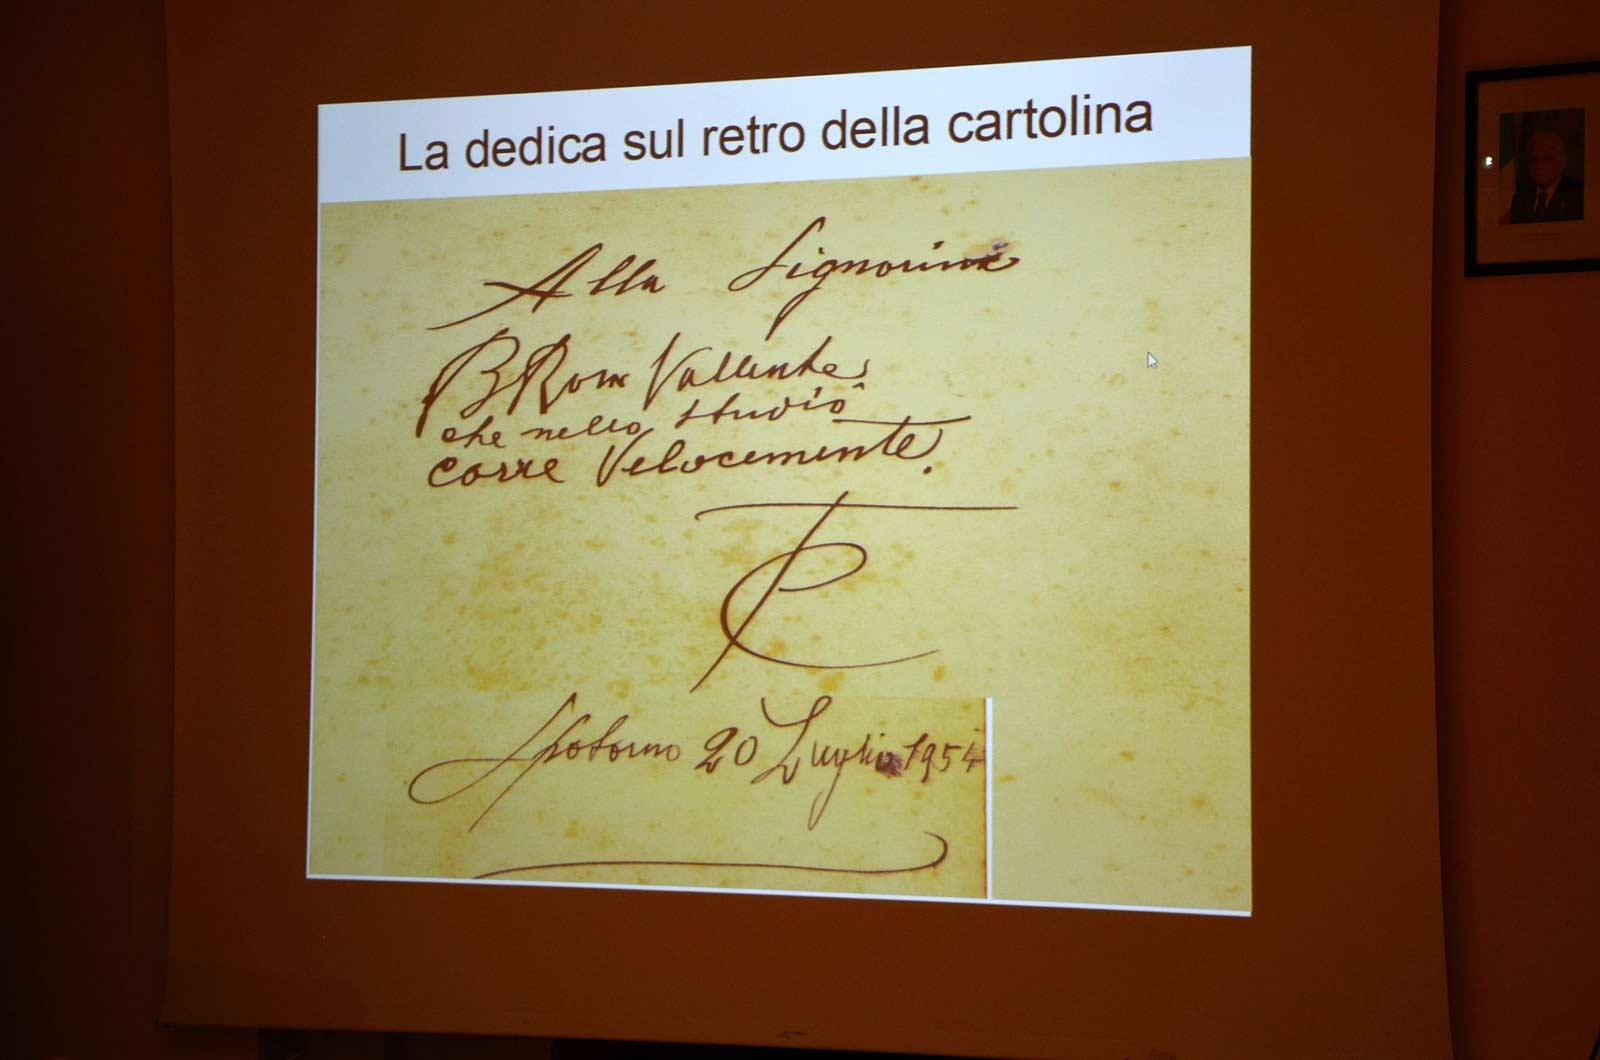 La dedica sul retro della cartolina
Alla Signorina
B Rom Vallente
che nello studio
corre Velocemente.
Spotorno 20 Luglio 1954